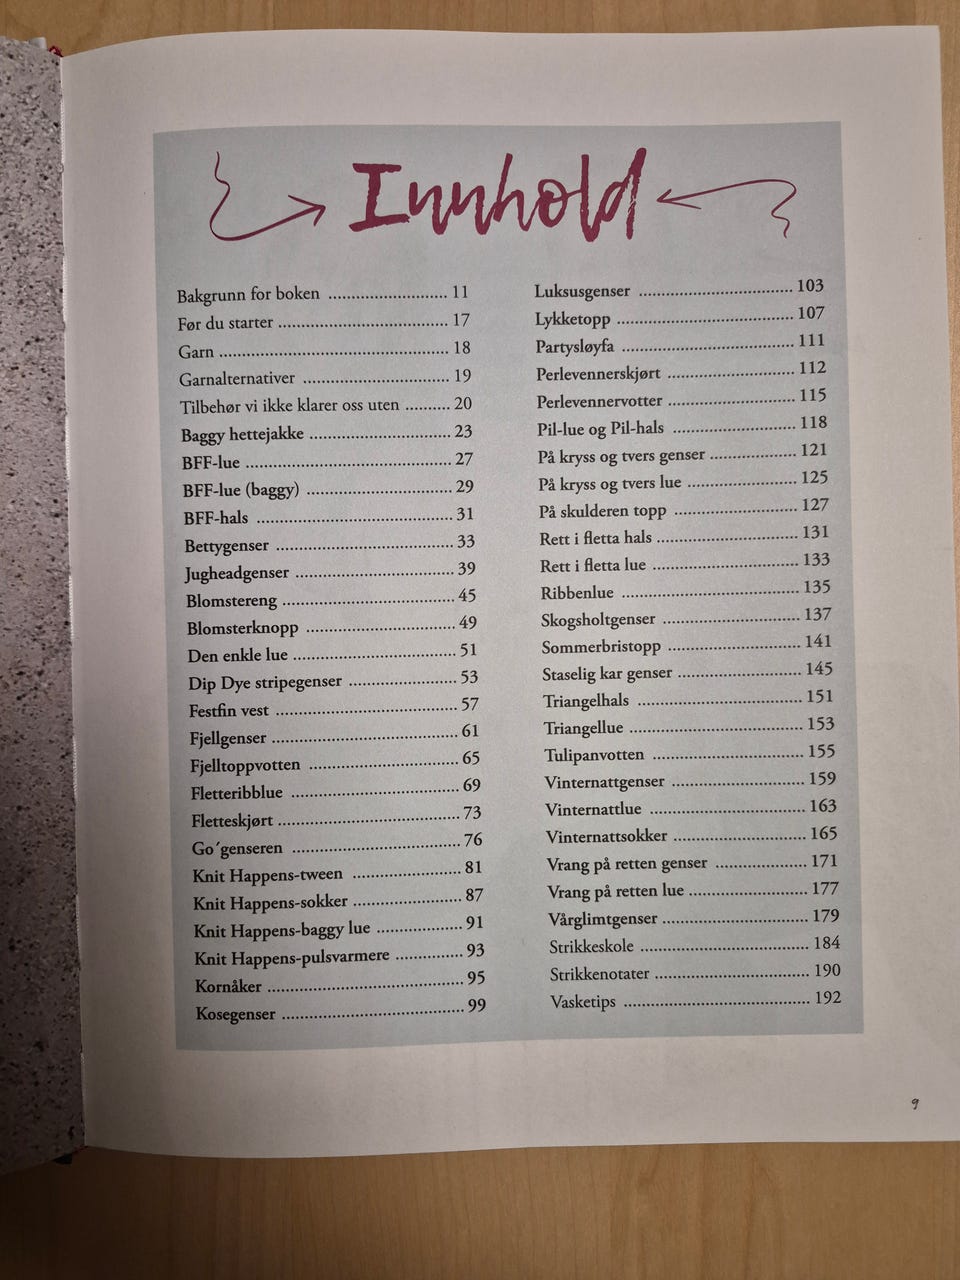 Innhold
Bakgrunn for boken ........................... 11
Før du starter ....................................... 17
Garn ..................................................... 18
Garnalternativer .................................. 19
Tilbehør vi ikke klarer oss uten .......... 20
Baggy hettejakke ................................. 23
BFF-lue ................................................ 27
BFF-lue (baggy) .................................. 29
BFF-hals .............................................. 31
Bettygenser ......................................... 33
Jugheadgenser ..................................... 39
Blomstereng ........................................ 45
Blomsterknopp ................................... 49
Den enkle lue ...................................... 51
Dip Dye stripegenser .......................... 53
Festfin vest .......................................... 57
Fjellgenser ........................................... 61
Fjelltoppvotten ................................... 65
Fletteribblue ....................................... 69
Fletteskjørt .......................................... 73
Go´genseren ....................................... 76
Knit Happens-tween .......................... 81
Knit Happens-sokker ......................... 87
Knit Happens-baggy lue .................... 91
Knit Happens-pulsvarmere ................ 93
Kornåker ............................................. 95
Kosegenser .......................................... 99
Luksusgenser ................................... 103
Lykketopp ........................................ 107
Partysløyfa ....................................... 111
Perlevennerskjørt ............................. 112
Perlevennervotter ............................. 115
Pil-lue og Pil-hals ............................ 118
På kryss og tvers genser .................... 121
På kryss og tvers lue ......................... 125
På skulderen topp ............................ 127
Rett i fletta hals ................................ 131
Rett i fletta lue ................................. 133
Ribbenlue ........................................ 135
Skogsholtgenser ............................... 137
Sommerbristopp .............................. 141
Staselig kar genser ............................ 145
Triangelhals ..................................... 151
Triangellue ....................................... 153
Tulipanvotten .................................. 155
Vinternattgenser .............................. 159
Vinternattlue ................................... 163
Vinternattsokker .............................. 165
Vrang på retten genser ..................... 171
Vrang på retten lue ........................... 177
Vårglimtgenser ................................. 179
Strikkeskole ..................................... 184
Strikkenotater .................................. 190
Vasketips ......................................... 192
9